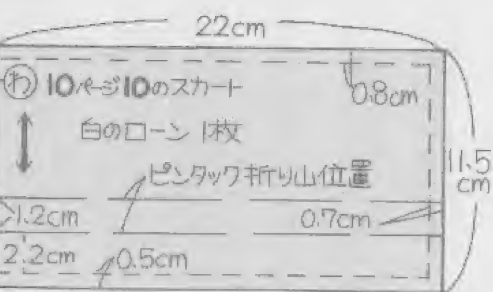 22cm
わ 10ページ10のスカート
0.8cm
白のローン 1枚
11.5
cm
ピンタック折り山位置
1.2cm
0.7cm
2.2cm
0.5cm